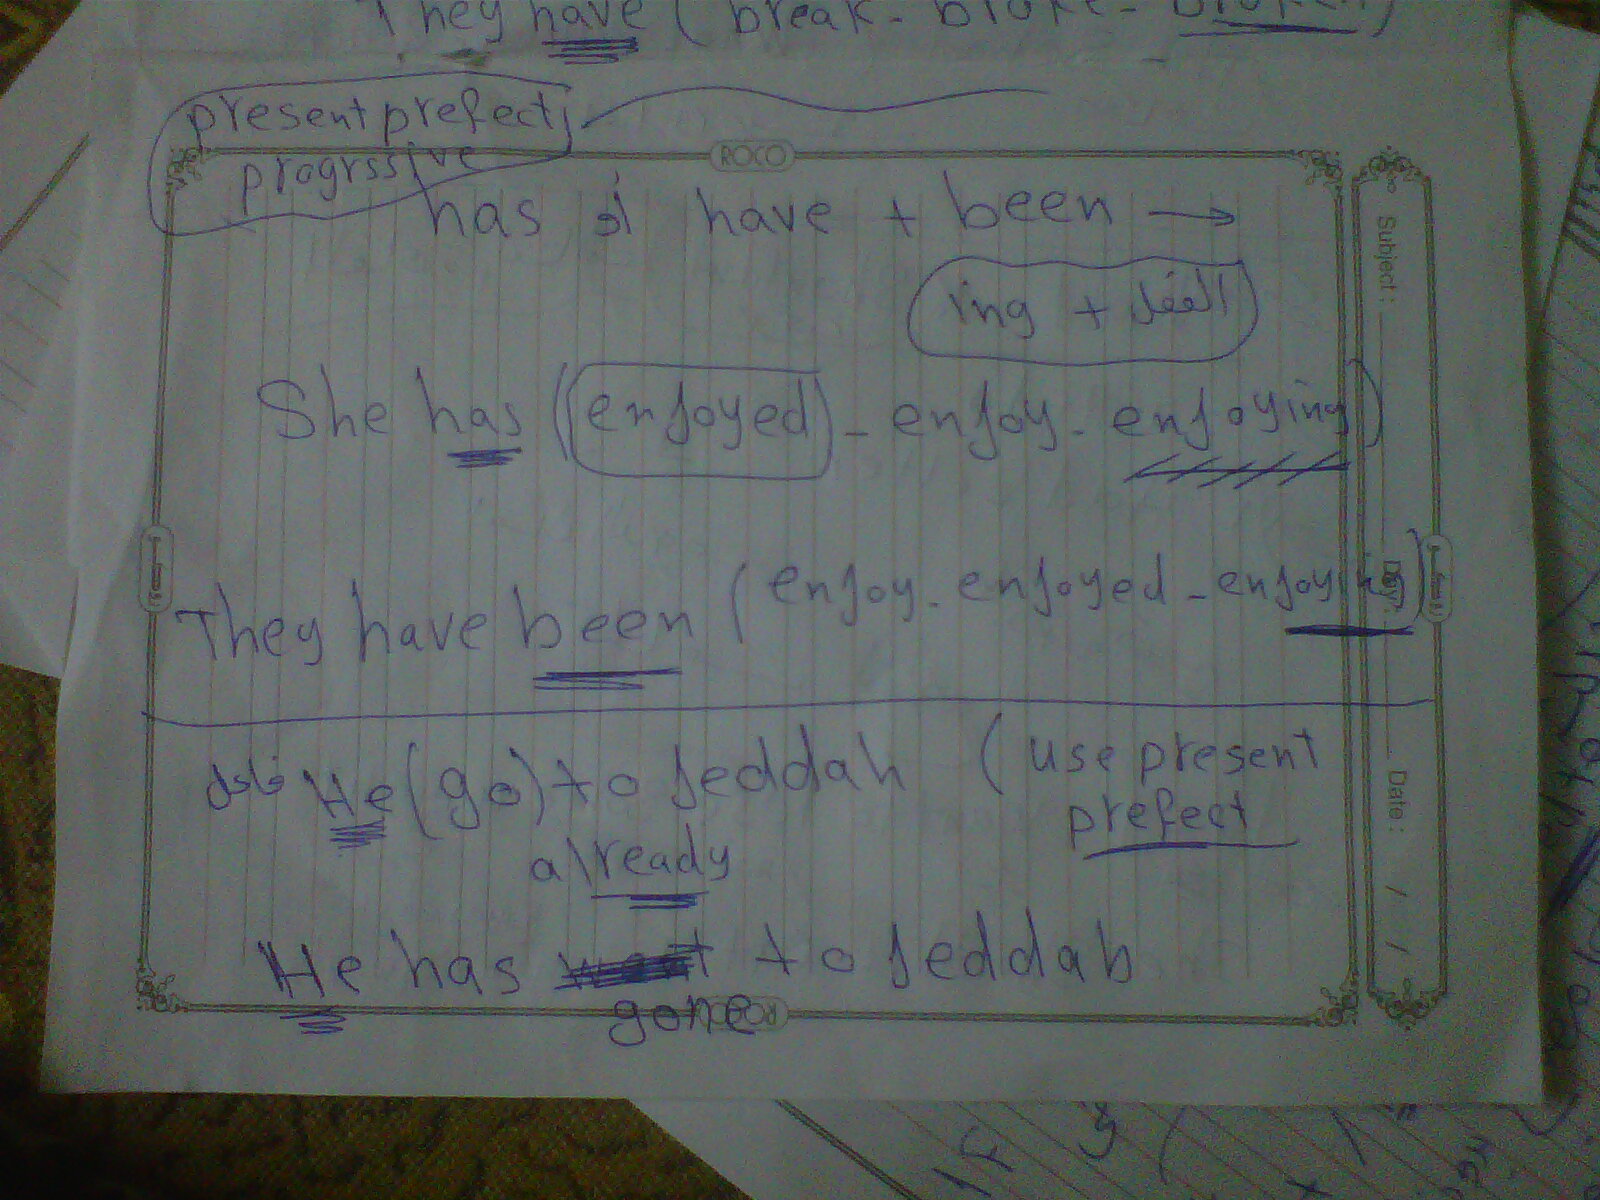 They have ( break - broke - broken )
present prefect
progrssive
ROCO
has أو have + been →
ing + الفعل
She has ( enjoyed - enjoy - enjoying )
They have been ( enjoy - enjoyed - enjoying )
He (go) to Jeddah ( use present
prefect
already
He has to Jeddah
gone
Subject :
Day:
Date : / /